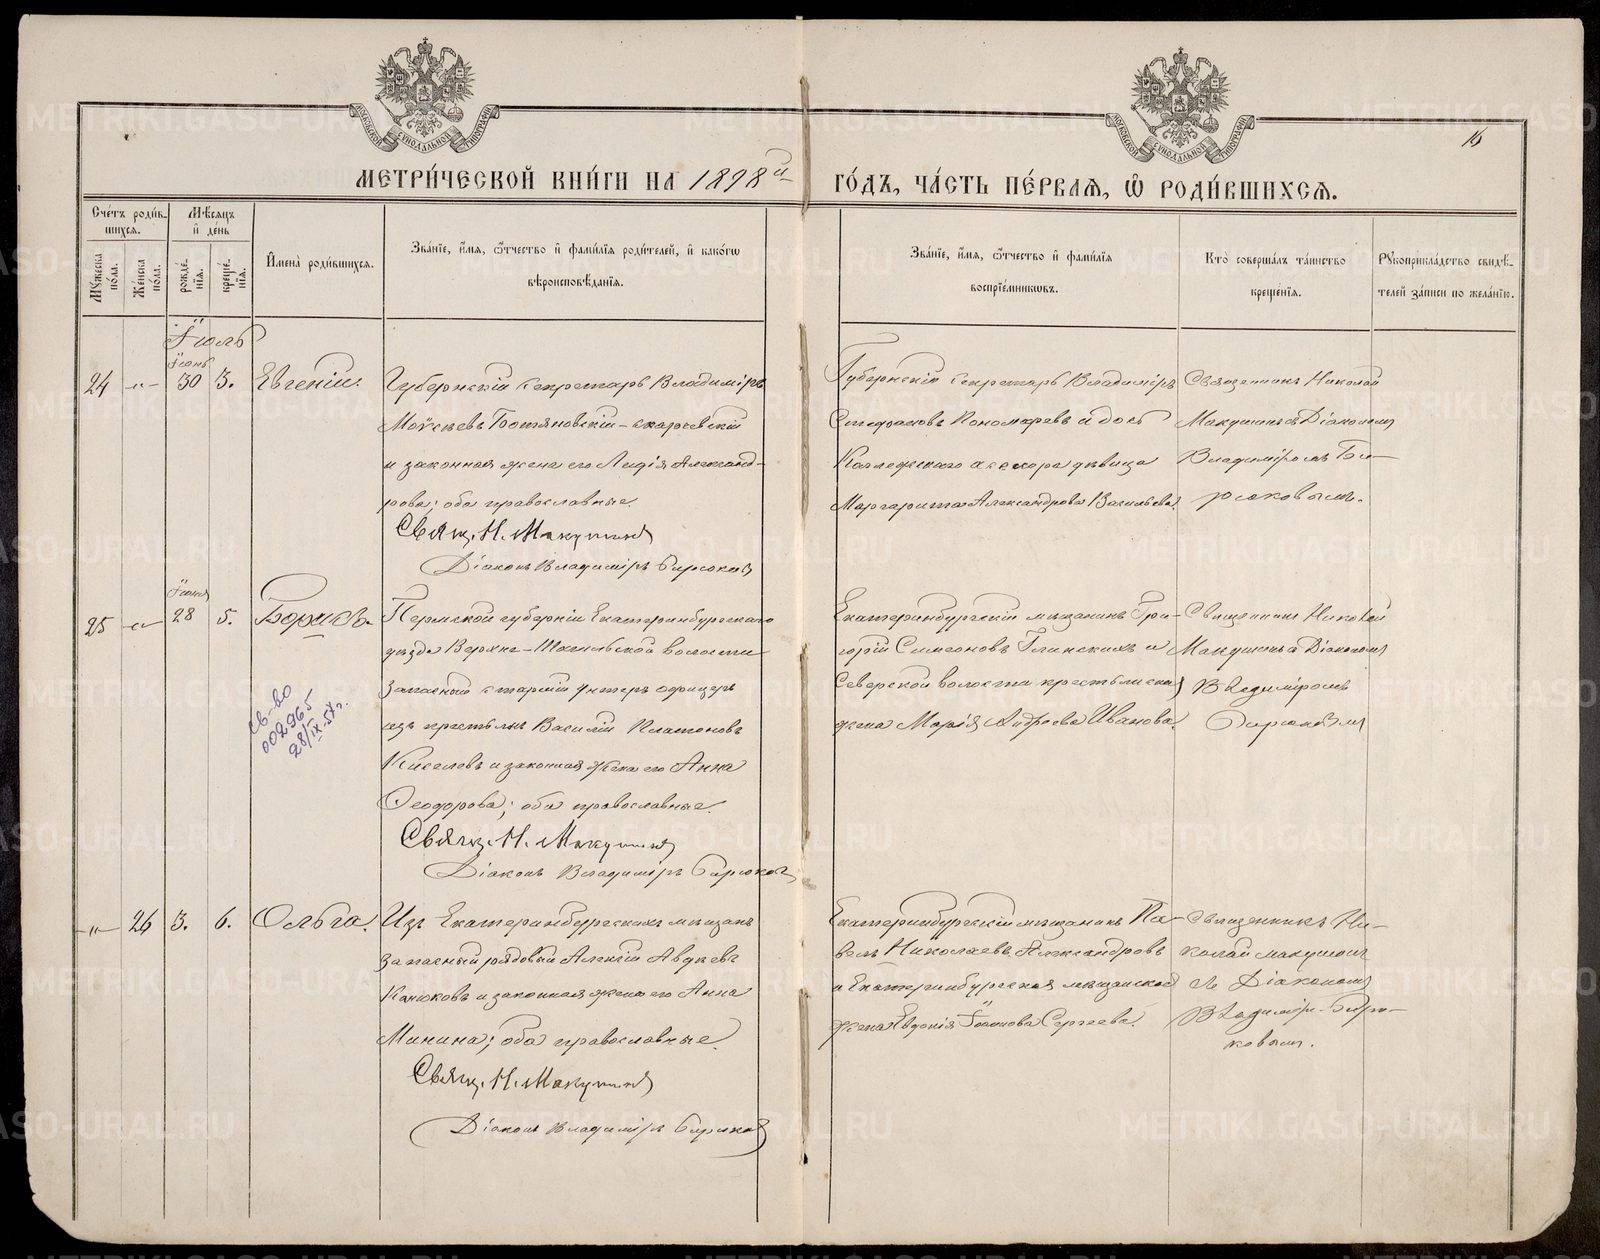 МОСКОВСКОЙ СѴНОДАЛЬНОЙ ТИПОГРАФІИ
МОСКОВСКОЙ СѴНОДАЛЬНОЙ ТИПОГРАФІИ
16
МЕТРИ́ЧЕСКОЙ КНИ́ГИ НА 1898й
ГО́ДЪ, ЧА́СТЬ ПЕ́РВАЯ, Ѡ҆ РОДИ́ВШИХСЯ.
Сче́тъ роди́в-
шихся.
Мꙋ́жеска по́ла.
Же́нска по́ла.
Мѣ́сяцъ и҆ де́нь
рожде́нїя.
креще́нїя.
И҆мена̀ роди́вшихся.
Зва́нїе, и҆́мя, ѻ҆́тчество и҆ фами́лїя роди́телей, и҆ како́гѡ
вѣроисповѣ́данїя.
Зва́нїе, и҆́мя, ѻ҆́тчество и҆ фами́лїя
воспрїе́мниковъ.
Кто̀ соверша́лъ та́инство
креще́нїя.
Рꙋкоприкла́дство свидѣ́-
телей за́писи по жела́нїю.
Іюль
24 -"- Іюнь 30 3. Евгеній.
Губернскій Секретарь Владиміръ
законная жена его Лидія Александ-
рова; оба православные.
Свящ. Н. Макушинъ
Діаконъ Владиміръ Бирюковъ
Губернскій Секретарь Владиміръ
Стефановъ Пономаревъ и дочь
Коллежскаго Асессора девица
Маргарита Александрова Васильева.
Священник Николай
Макушин с Діаконом
Владиміромъ Би-
рюковымъ.
25 -"- Іюня 28 5. Борисъ.
Св-во
002965
28/IX-57г.
Пермской губерніи Екатеринбургскаго
уезда Верхне-Тагильской волости
Запасный старшій унтеръ офицеръ
изъ крестьянъ Василій Платоновъ
Киселевъ и законная жена его Анна
Ѳеодорова; оба православные.
Свящ. Н. Макушинъ
Діаконъ Владиміръ Бирюковъ
Екатеринбургскій мещанинъ Гри-
горій Симеоновъ Глинскихъ и
Северской волости крестьянская
жена Марія Андреева Иванова.
Священник Николай
Макушин с Діаконом
Владиміромъ
Бирюковым
-"- 26 3. 6. Ольга.
Изъ Екатеринбургскихъ мещанъ
запасный рядовый Алексій Авдеевъ
Канюковъ и законная жена его Анна
Минина; оба православные.
Свящ. Н. Макушинъ
Діаконъ Владиміръ Бирюковъ
Екатеринбургскій мещанинъ Па-
велъ Николаевъ Александровъ
и Екатеринбургская мещанская
жена Евдокія Іоаннова Сергеева.
Священникъ Ни-
колай Макушин
с Діаконом
Владимір. Бирю-
ковым.
METRIKI.GASO-URAL.RU